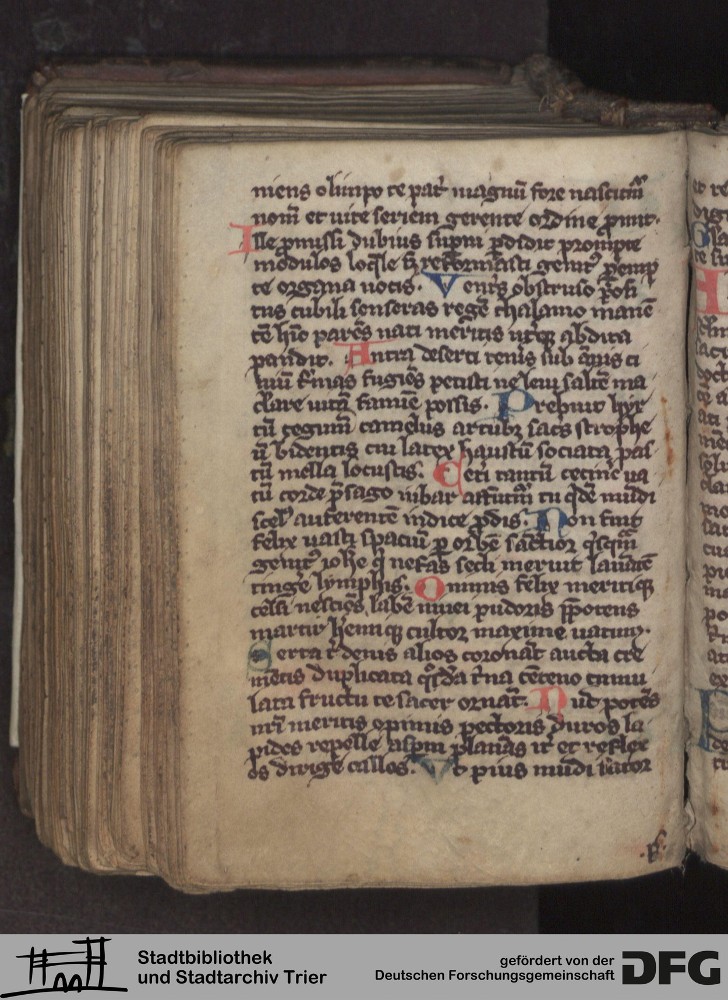 niens olimpo te patͥ magnū fore nascitūͫ
nom̄ et uite seriem gerente ordine ꝓmit.
Ille ꝓmissi dubius suꝑni ꝑdidit prompte
modulos loqͤle sꝫ reformasti genitꝰ ꝑemp
te organa uocis. Ventͥs obstruso ꝛ̄osi
tus cubili senseras regē thalamo manē
tē hīc parēs nati meritis utͥqꝫ abdita
pandit. Antra deserti tenīs sub ānis ci
uiū tͥmas fugiēs petisti ne leui saltē ma
clare uitā famīe possis. Prebuit hyr
tū tegim̄ camelus artubꝫ sacͥs strophe
ū bidentis cui latex haustū sociata pas
tū mella locustis. Ceti tantū cecinͤe ua
tū corde p̄sago iubar affutūͫ tu qͥdē mūdi
scelꝰ auferentē indice ꝓdis. Non fuit
felix uasti spaciū ꝑ orbē sanctior qͥsqͫ
genitꝰ iohē qͥ nefas secli meruit lauātē
tingͤe lymphis. O nimis felix meritiqꝫ
celsi nesciēs labē niuei pudoris p̄potens
martir hͤemiqꝫ cultor maxime uatum.
Serta tͬ denis alios coronāt aucta cre
mētis duplicata qͦsdā tͥna cēteno cumu
lata fructu te sacer ornāt. Nūc potēs
nr̄i meritis opimis pectoris duros la
pides repelle asꝑm planās itͬ et reflex
os dirige calles. Vt pius mūdi sator
Stadtbibliothek
und Stadtarchiv Trier
gefördert von der
Deutschen Forschungsgemeinschaft
DFG